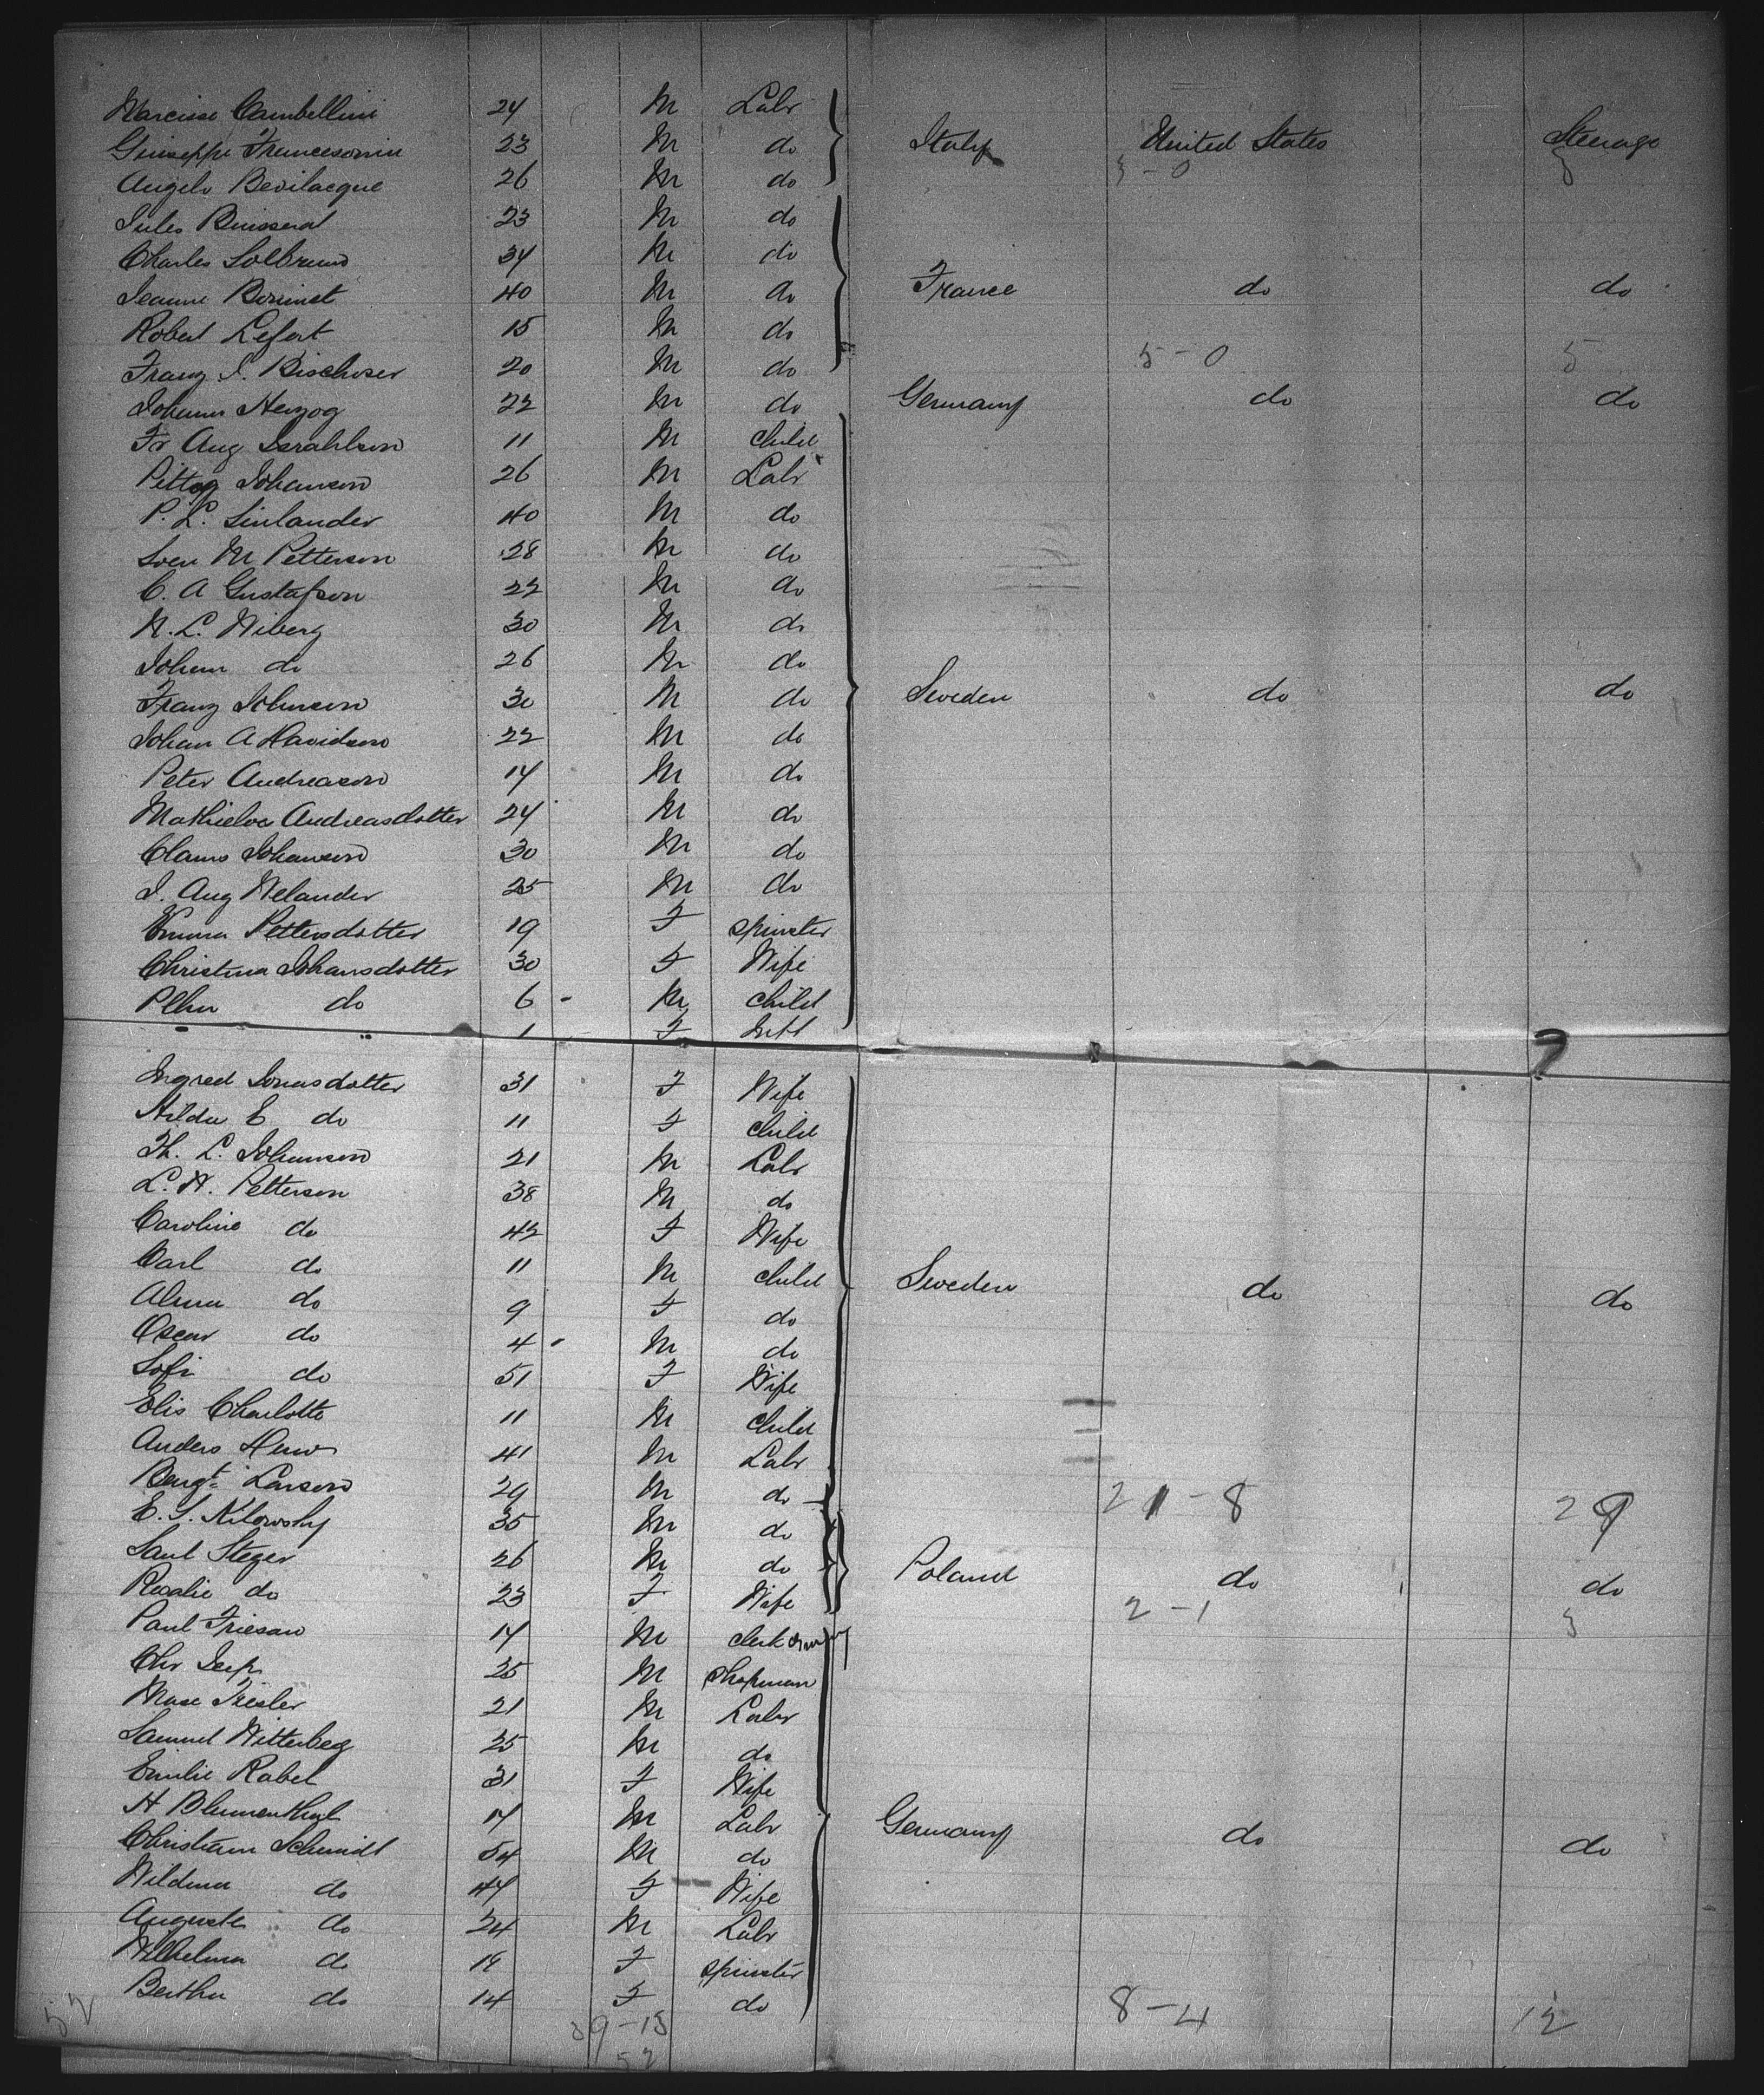 Narcisse Cambellini 24 M Labr
Giuseppe Francesonin 23 M do Italy United States Steerage
3 - 0 3
Angelo Bevilacque 26 M do
Jules Buisseral 23 M do
Charles Solbrund 34 M do
Jeanne Borninet 40 M do France do do
Robert Lefort 15 M do
5 - 0 5
Franz J. Bischoser 20 M do
Johann Herzog 22 M do Germany do do
Fr Aug Israhlson 11 M child
Johanson 26 M Labr
P. L. Linlander 40 M do
Sven M Petterson 28 M do
C. A Gustafson 22 M do
N. L. Wiberg 30 M do
Johan do 26 M do
Franz Johnson 30 M do Sweden do do
Johan A Davidson 22 M do
Peter Andreason 14 M do
Andreasdotter 24 M do
Claus Johanson 30 M do
J. Aug Welander 25 M do
Emma Pettersdotter 19 F Spinster
Christina Johansdotter 30 F Wife
do 6 M child
1 F Inft
Ingred Jonasdotter 31 F Wife
Hilda E do 11 F child
Th. L. Johanson 21 M Labr
L. H. Petterson 38 M do
Caroline do 42 F Wife
Carl do 11 M child Sweden do do
Alma do 9 F do
Oscar do 4 M do
Sofi do 51 F Wife
Elis Charlotte 11 M child
Anders 41 M Labr
Bengt Larson 29 M do
21 - 8 29
E. S. Kilowsky 35 M do
Saul Steger 26 M do Poland do do
Rosalie do 23 F Wife
2 - 1 3
Paul Friesan 14 M clerk
Chr 25 M Shopman
Max Fiesler 21 M Labr
Samuel Witterberg 25 M do
Emilie Rabel 31 F Wife
H Blumenthal 17 M Labr Germany do do
Christian Schmidt 54 M do
do 47 F Wife
Auguste do 24 M Labr
Wilhelma do 18 F Spinster
Bertha do 14 F do
8 - 4 12
52 39 - 13
52